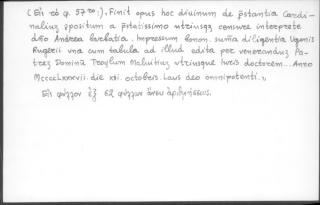 (Εἰς τὸ φ. 57ʳᵒ:). Finit opus hoc diuinum de p̄stantia Cardi-
nalius ꝓpositum a p̄statissimo utriusqȝ censure interprete
dn̄o Andrea barbatia. Impressum bonon. summa diligentia Ugonis
Rugerii una cum tabula ad illud edita per venerandum Pa-
trem Dominum Troylum Maluitium utriusque Iuris doctorem.. Anno
Mcccclxxxvii. die xii. octobris. Laus deo omnipotenti.,,
Εἰς φύλλον ἐξ 62 φύλλων ἄνευ ἀριθμήσεως.